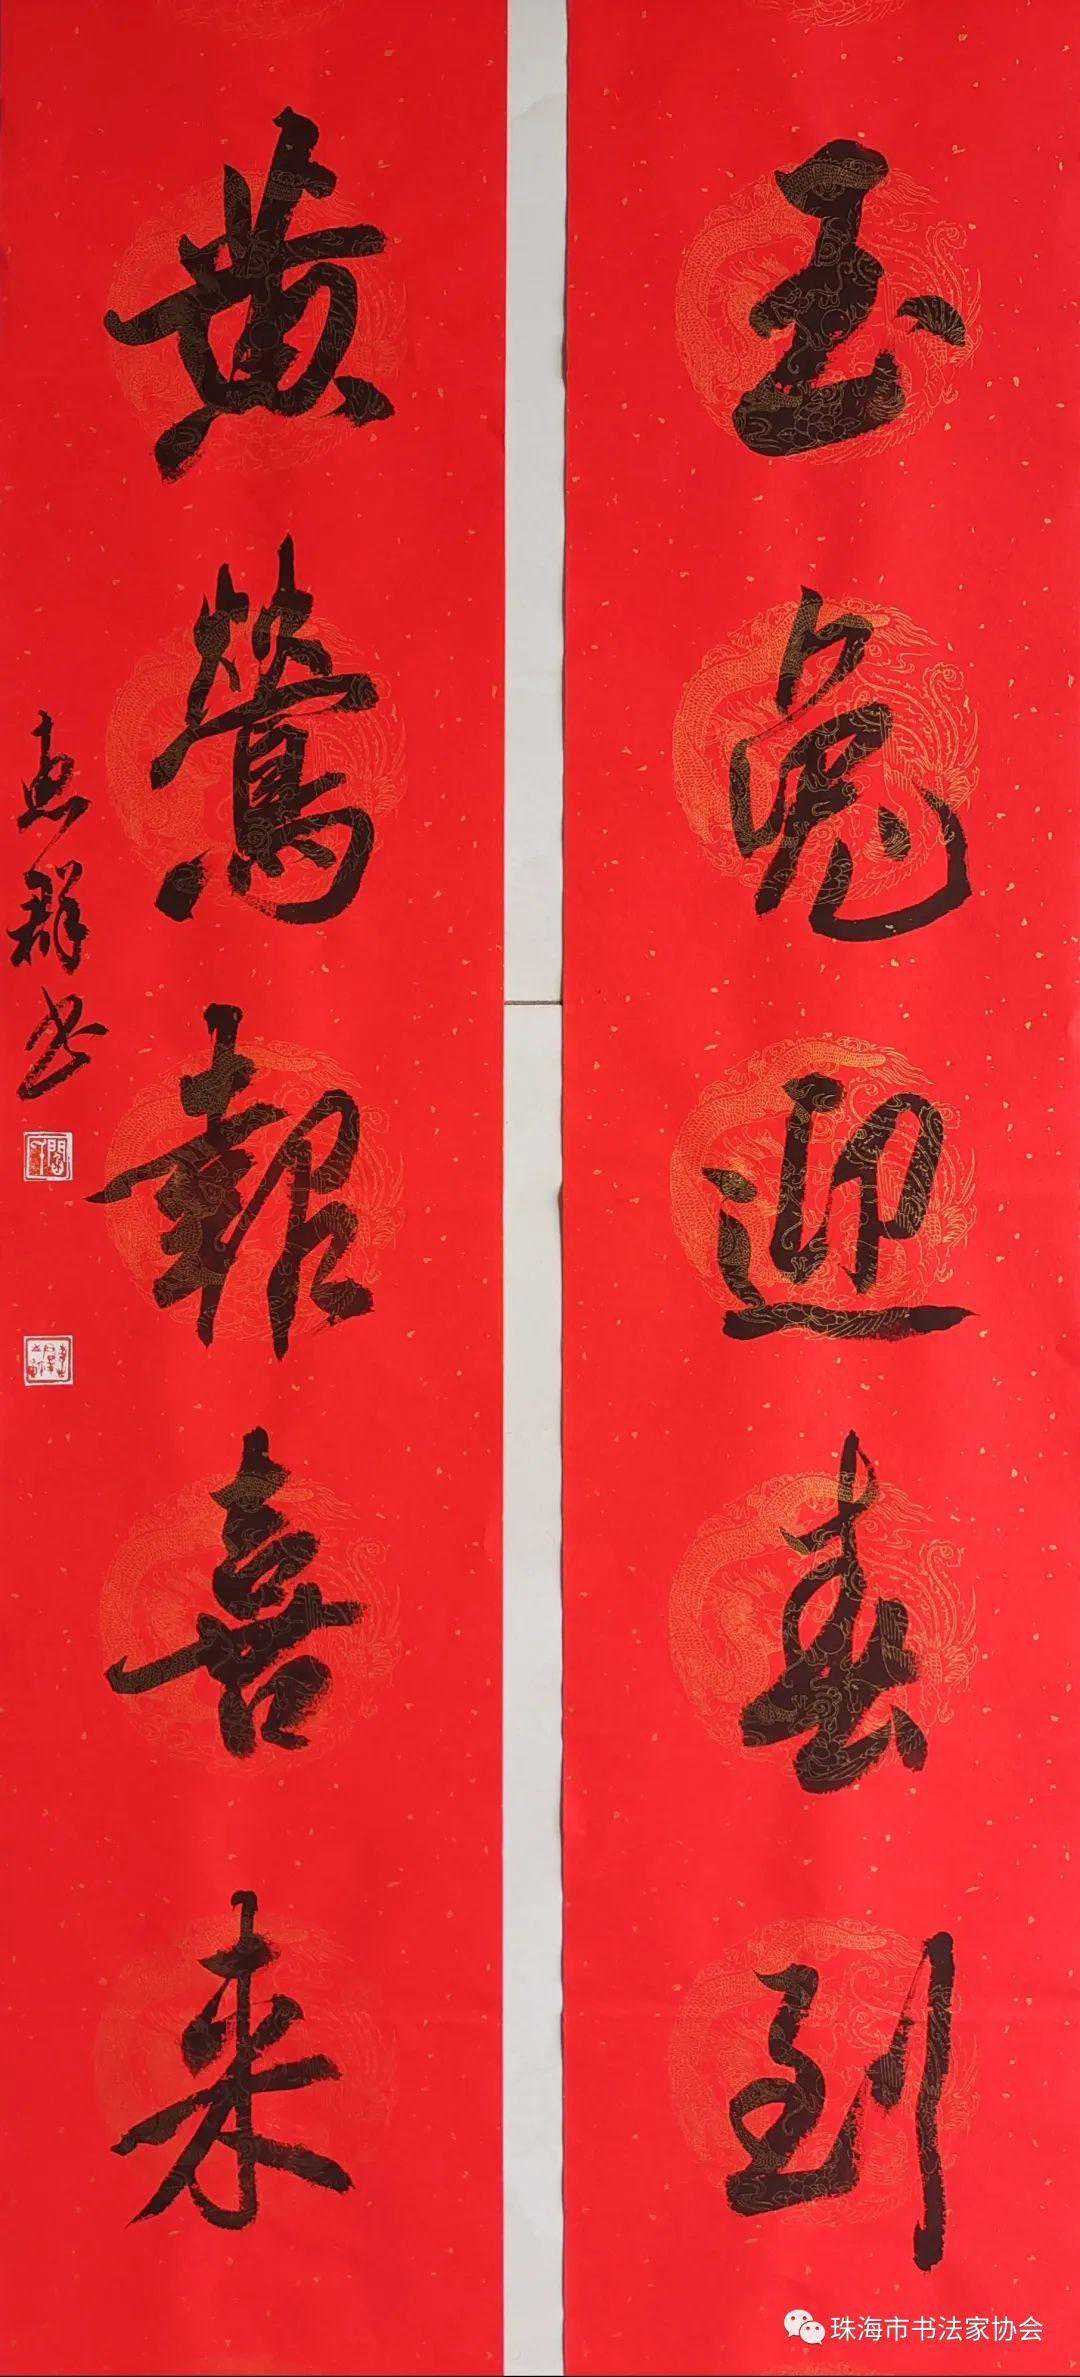 玉兔迎春到
黄鶯報喜来
惠群书
珠海市书法家协会